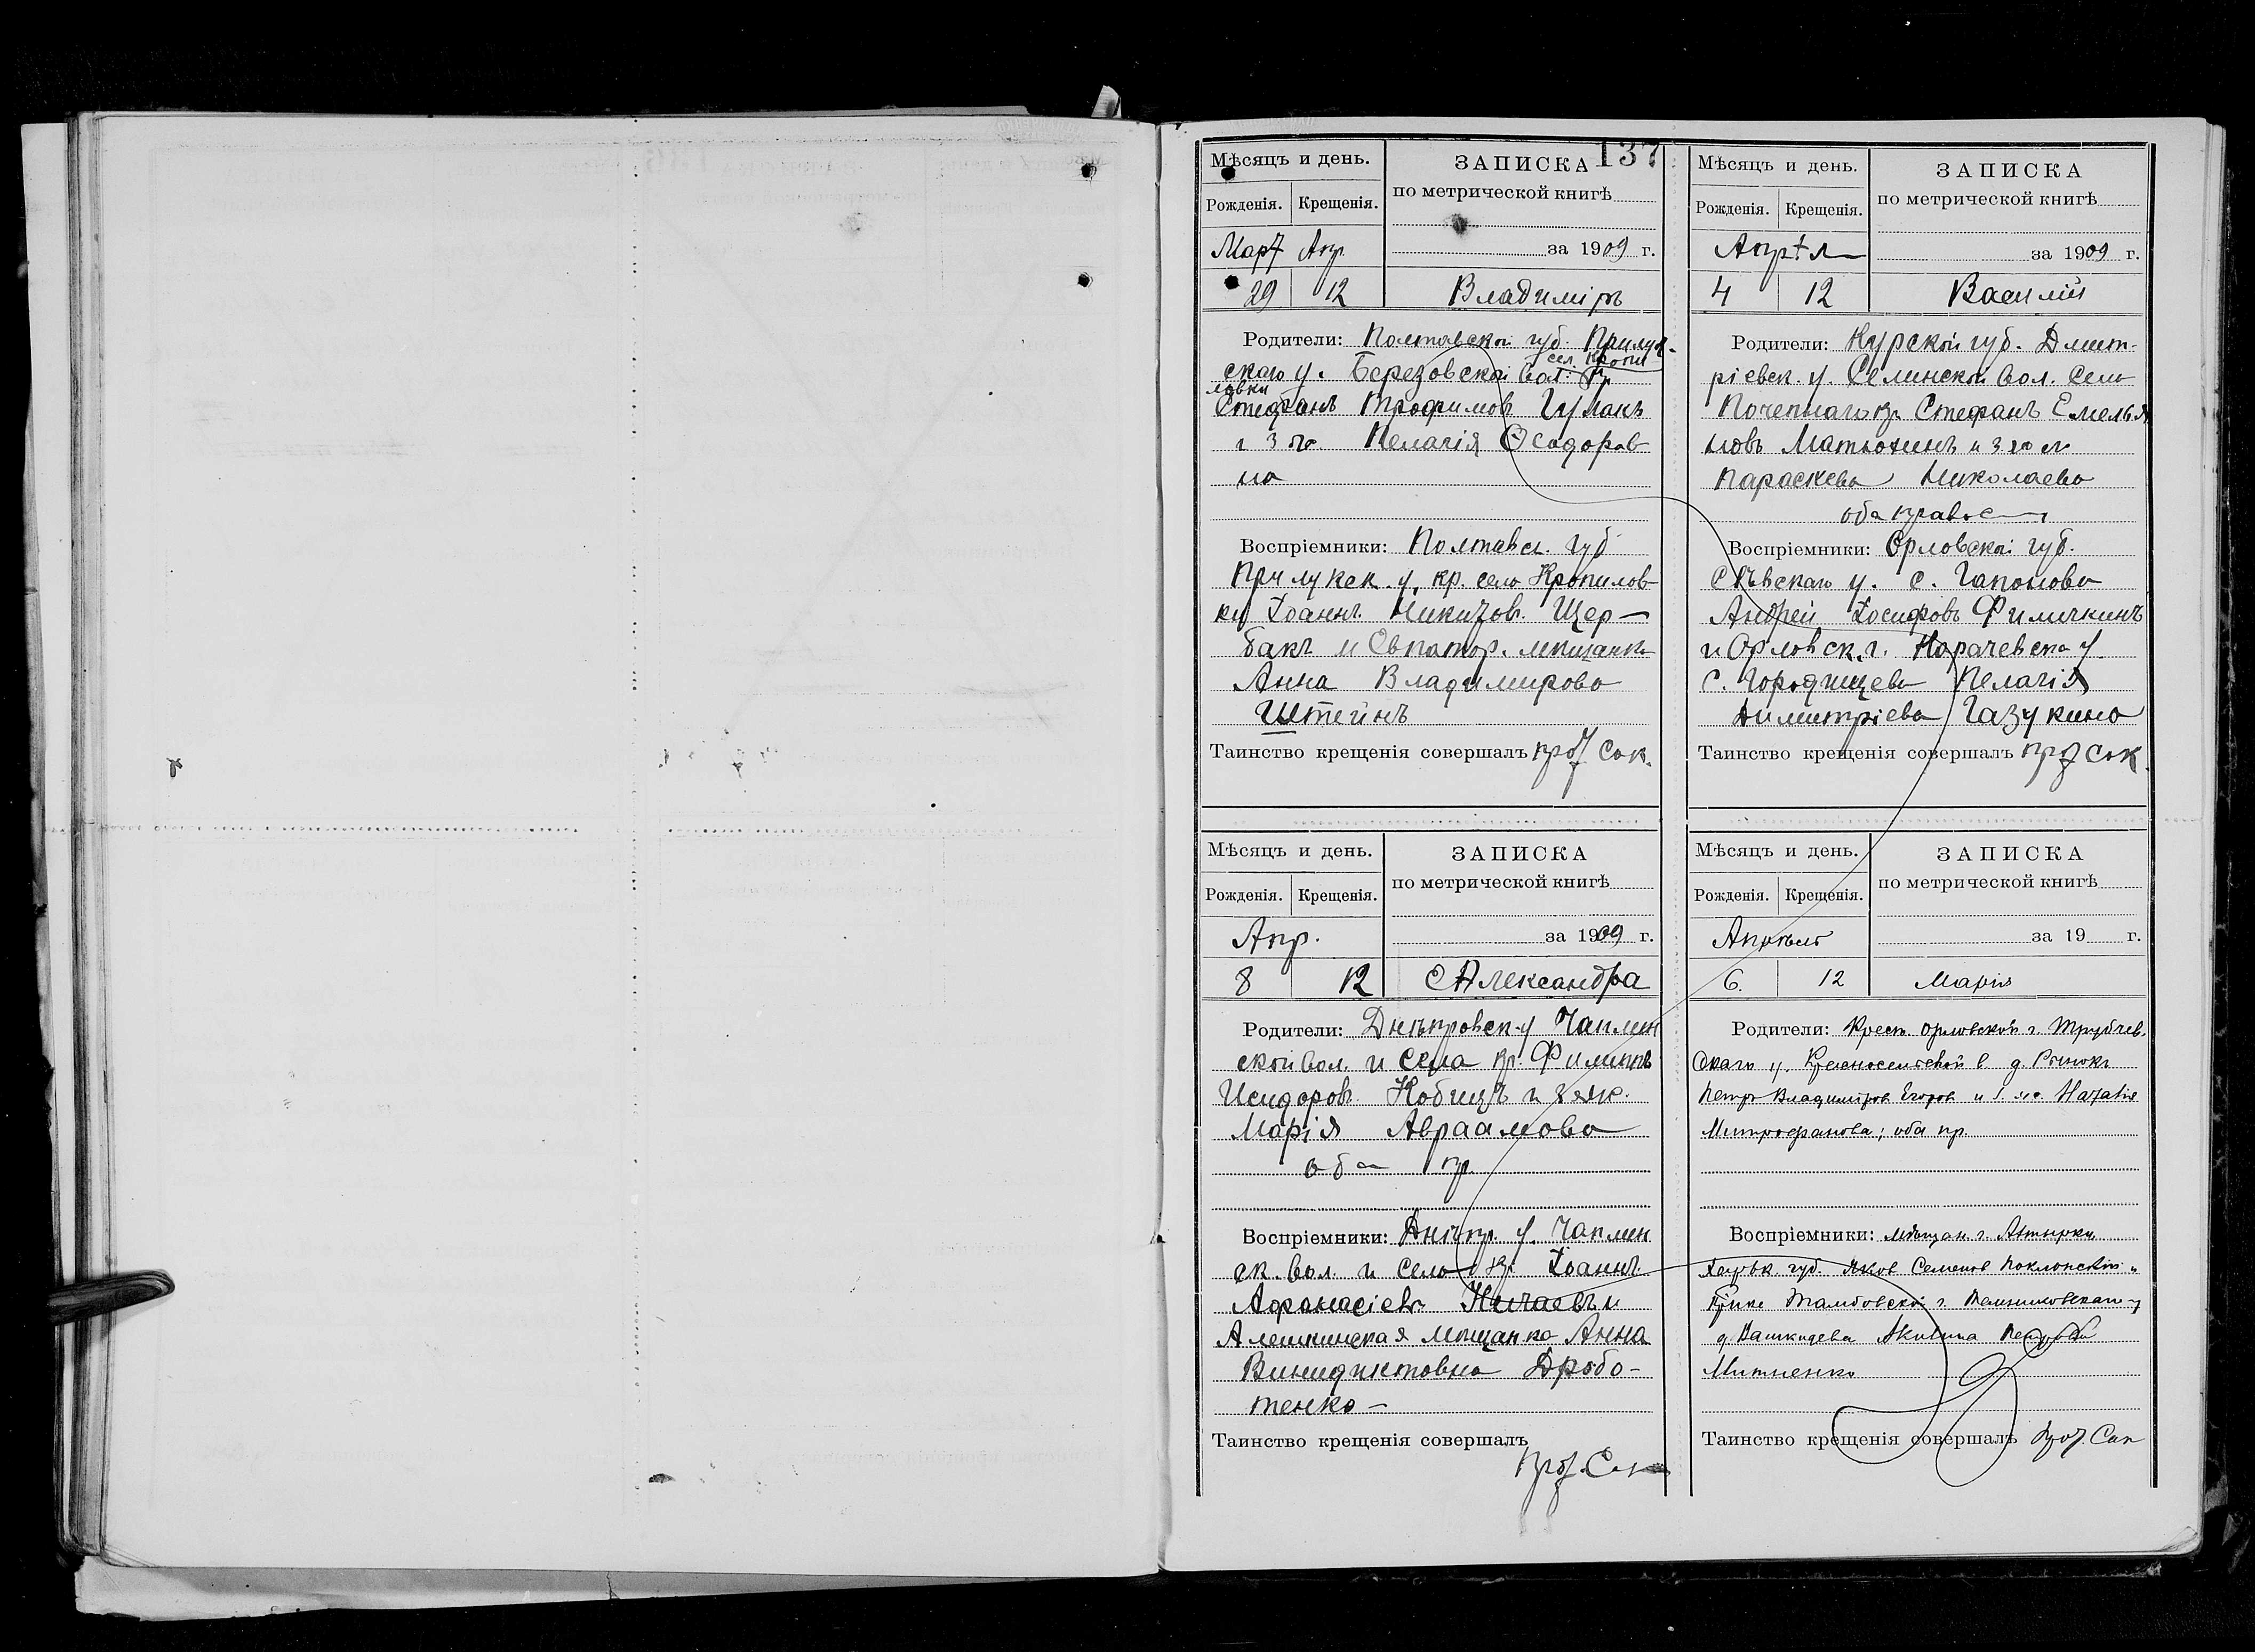 137
Мѣсяцъ и день.
Рожденія. Крещенія.
ЗАПИСКА
по метрической книгѣ
за 1909 г.
Апр.
29 12
Владиміръ
Родители: Полтавской губ. Прилук-
скаго у. Березовской вол. сел. Кропи
ловки
Стефанъ Трофимовъ Гулакъ
Пелагія Ѳеодоров
на
Воспріемники: Полтавск. губ
Прилукск. у. кр. села Кропилов
ки Іоаннъ Никитовъ Щер-
бакъ и Евпатор. мѣщанка
Анна Владимирова
Штейнъ
Таинство крещенія совершалъ прот Сок.
Мѣсяцъ и день.
Рожденія. Крещенія.
ЗАПИСКА
по метрической книгѣ
за 1909 г.
4 12
Василій
Родители: Курской губ. Дмит-
ріевск. у. Селинской вол. села
Почепнаго кр. Стефанъ Емелья
новъ Матюхинъ и
Параскева Николаева
оба
Воспріемники: Орловской губ.
Сѣвскаго у. с. Гапонова
Андрей Іосифовъ Филичкинъ
и Орловск. г. Карачевска у.
с. Городищева Пелагія
Димитріева Газукина
Таинство крещенія совершалъ прот Сок.
Мѣсяцъ и день.
Рожденія. Крещенія.
ЗАПИСКА
по метрической книгѣ
за 1909 г.
Апр.
8 12
Александра
Родители: Днѣпровск. у Чаплин
ской вол. и села кр. Филиппъ
Исидоровъ Кобецъ и
Марія Авраамова
оба пр.
Воспріемники: Днѣпр. у. Чаплин
ск. вол. и села кр. Іоаннъ
Афанасіевъ и
Алешкинская мѣщанка Анна
Винидиктовна Дробо-
тенко -
Таинство крещенія совершалъ
прот. Сок
Мѣсяцъ и день.
Рожденія. Крещенія.
ЗАПИСКА
по метрической книгѣ
за 19 г.
6. 12
Марія
Родители: Крест. Орловской г. Трубчев.
скаго у. в. д.
Петръ Владиміровъ Егоровъ и Наталія
Митрофанова; оба пр.
Воспріемники: мѣщан. г. Ахтырки
Харьк. губ. Яковъ Семеновъ
Тамбовской г.
д. Акилина
Митненко
Таинство крещенія совершалъ прот. Сок